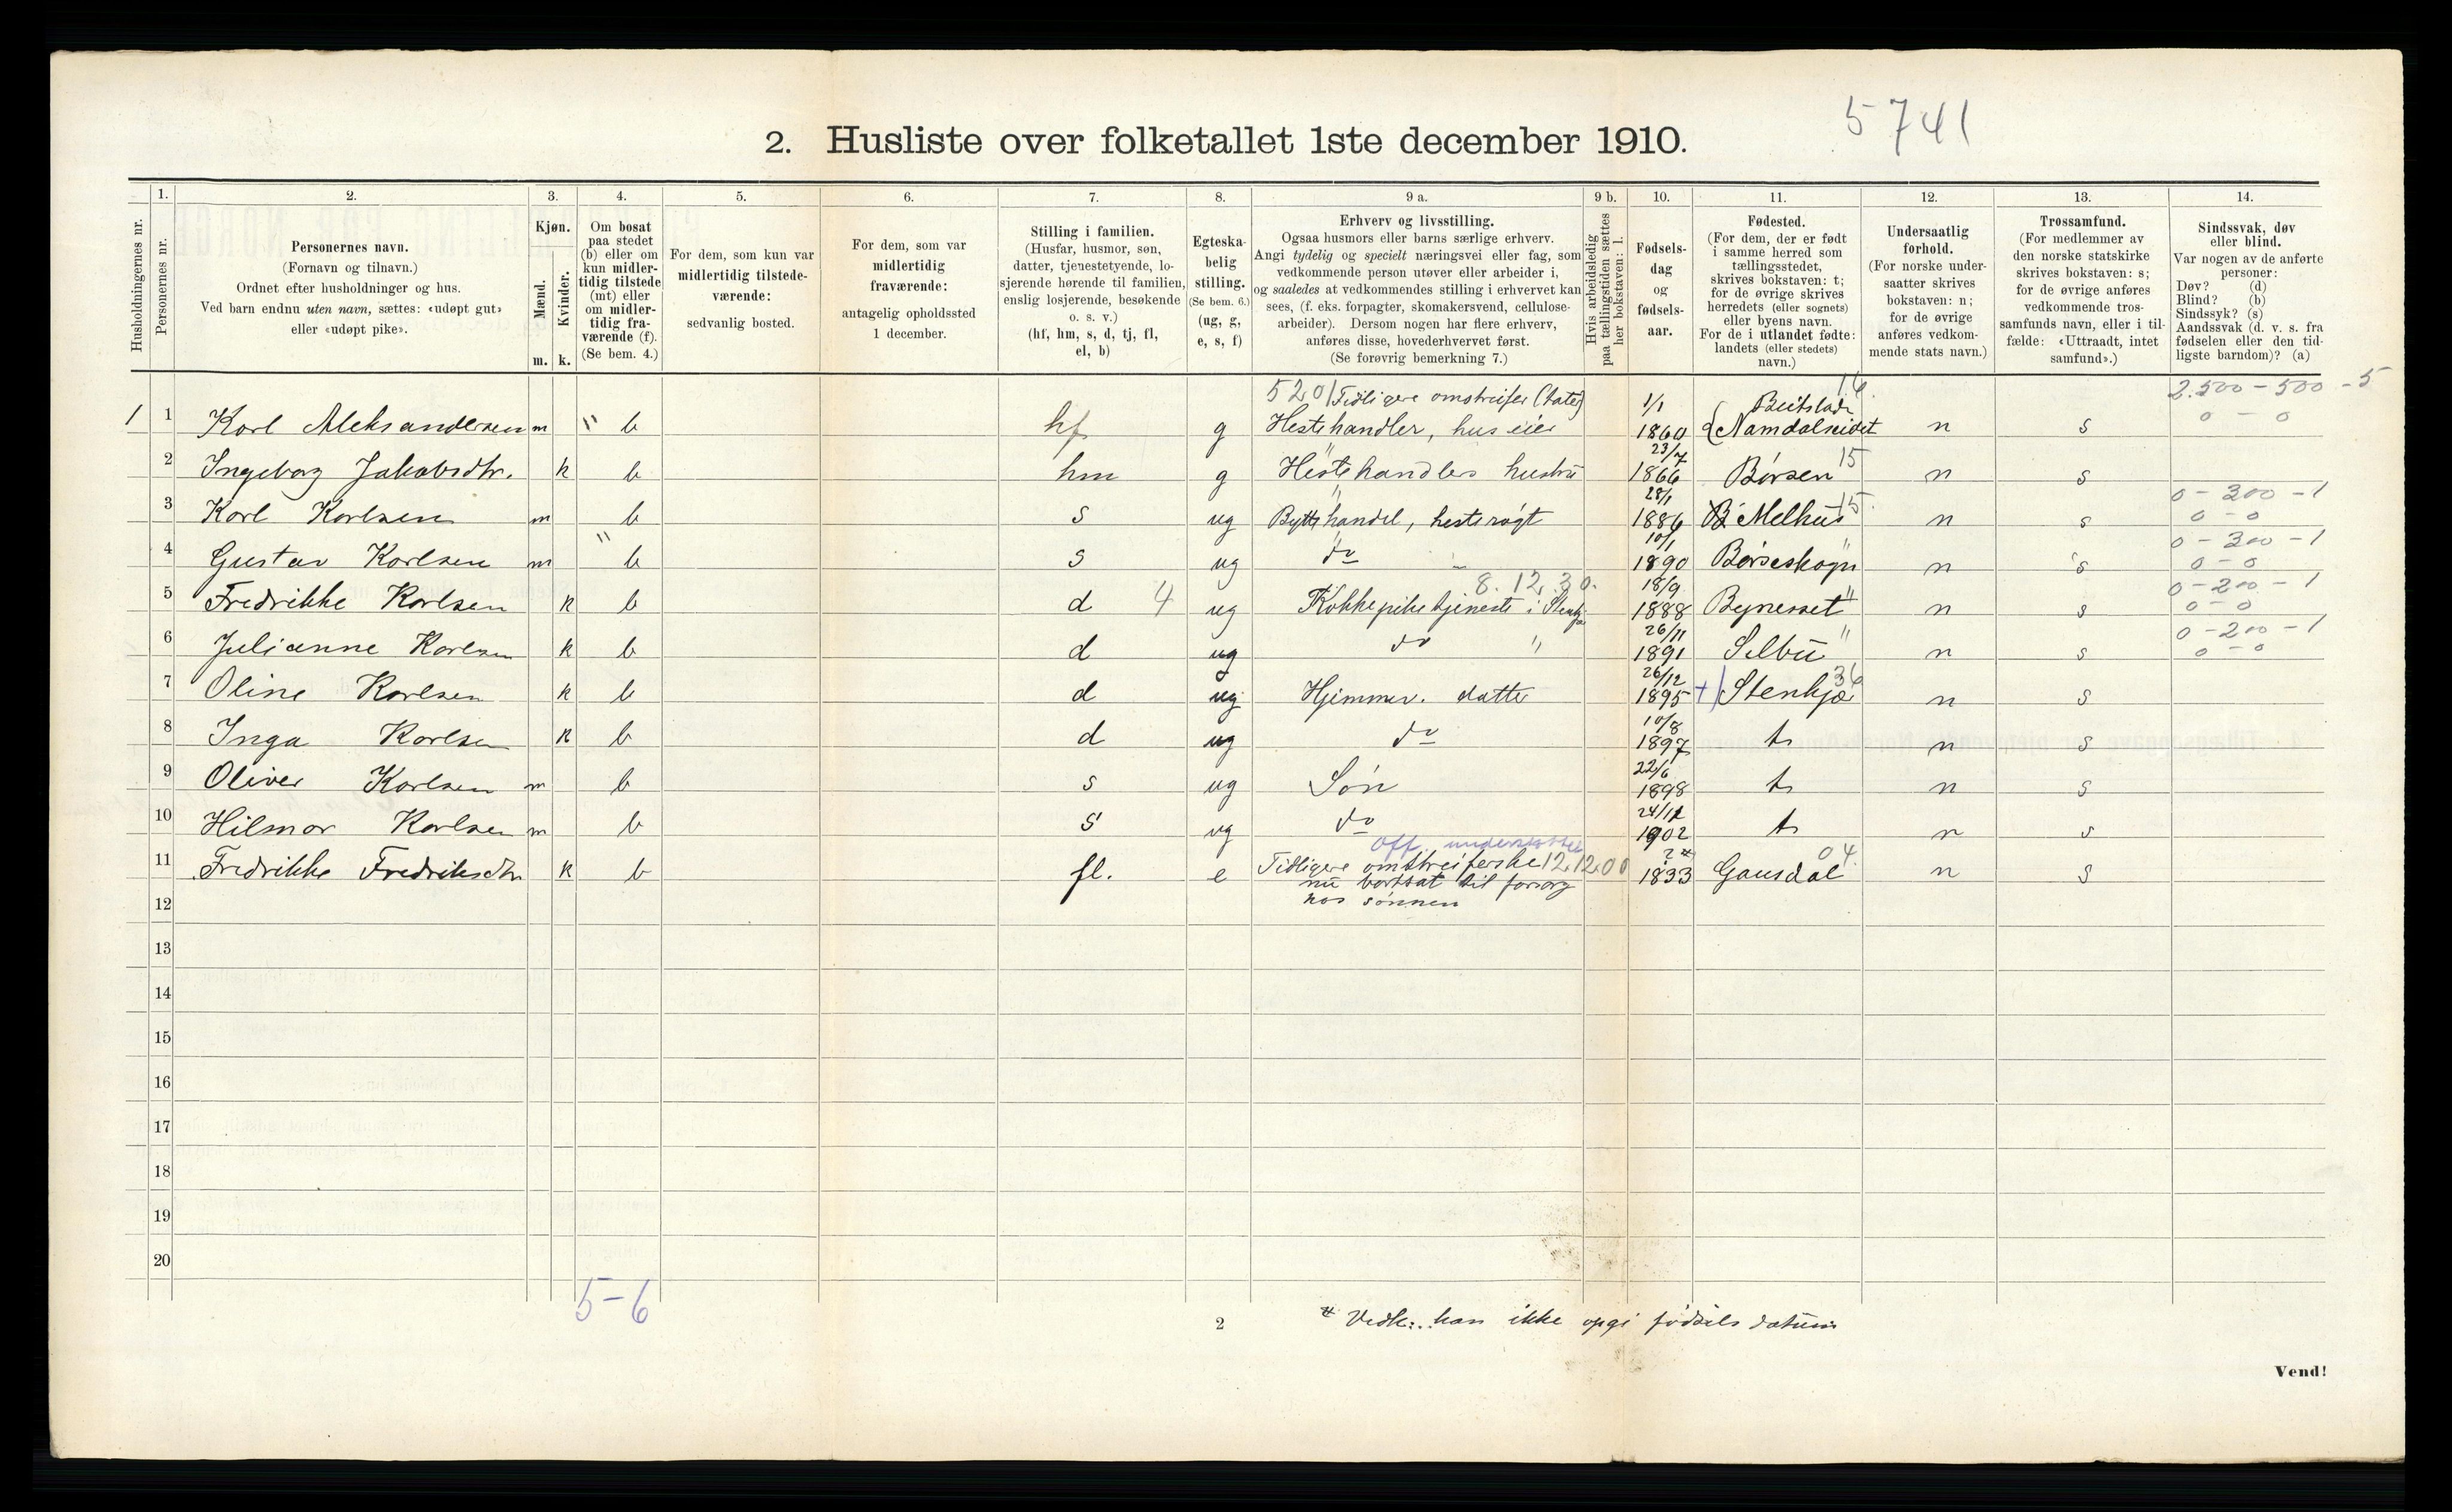 5741
2. Husliste over folketallet 1ste december 1910.
Husholdningernes nr.
1.
Personernes nr.
2.
Personernes navn.
(Fornavn og tilnavn.)
Ordnet efter husholdninger og hus.
Ved barn endnu uten navn, sættes: «udøpt gut»
eller «udøpt pike».
3.
Kjøn.
Mænd.
Kvinder.
m. k.
4.
Om bosat
paa stedet
(b) eller om
kun midler-
tidig tilstede
(mt) eller
om midler-
tidig fra-
værende (f).
(Se bem. 4.)
5.
For dem, som kun var
midlertidig tilstede-
værende:
sedvanlig bosted.
6.
For dem, som var
midlertidig
fraværende:
antagelig opholdssted
1 december.
7.
Stilling i familien.
(Husfar, husmor, søn,
datter, tjenestetyende, lo-
sjerende hørende til familien,
enslig losjerende, besøkende
o. s. v.)
(hf, hm, s, d, tj, fl,
el, b)
8.
Egteska-
belig
stilling.
(Se bem. 6.)
(ug, g,
e, s, f)
9 a.
Erhverv og livsstilling.
Ogsaa husmors eller barns særlige erhverv.
Angi tydelig og specielt næringsvei eller fag, som
vedkommende person utøver eller arbeider i,
og saaledes at vedkommendes stilling i erhvervet kan
sees, (f. eks. forpagter, skomakersvend, cellulose-
arbeider). Dersom nogen har flere erhverv,
anføres disse, hovederhvervet først.
(Se forøvrig bemerkning 7.)
9 b.
Hvis arbeidsledig
paa tællingstiden sættes
her bokstaven: l.
10.
Fødsels-
dag
og
fødsels-
aar.
11.
Fødested.
(For dem, der er født
i samme herred som
tællingsstedet,
skrives bokstaven: t;
for de øvrige skrives
herredets (eller sognets)
eller byens navn.
For de i utlandet fødte:
landets (eller stedets)
navn.)
12.
Undersaatlig
forhold.
(For norske under-
saatter skrives
bokstaven: n;
for de øvrige
anføres vedkom-
mende stats navn.)
13.
Trossamfund.
(For medlemmer av
den norske statskirke
skrives bokstaven: s;
for de øvrige anføres
vedkommende tros-
samfunds navn, eller i til-
fælde: «Uttraadt, intet
samfund».)
14.
Sindssvak, døv
eller blind.
Var nogen av de anførte
personer:
Døv? (d)
Blind? (b)
Sindssyk? (s)
Aandssvak (d. v. s. fra
fødselen eller den tid-
ligste barndom)? (a)
5201 Tidligere omstreifer (tater) 1/1 Beitstad 16 2.500 - 500 - 5
1 1 Karl Aleksandersen m " b hf g Hestehandler, huseier 1860 Namdalseidet n s 0 - 0
2 Ingeborg Jakobsdtr. k b hm g Hestehandlers hustru 23/7 1866 Børsen 15 n s
3 Karl Karlsen m b s ug Byttehandel, hesterøgt 28/1 1886 Melhus 15 n s 0 - 300 - 1 0 - 0
4 Gustav Karlsen m " b s ug do " 10/1 1890 Børseskogn " n s 0 - 300 - 1 0 - 0
5 Fredrikke Karlsen k b d 4 ug Kokkepike tjeneste i Stenkj 8.12.30. 18/9 1888 Bynesset " n s 0 - 200 - 1 0 - 0
6 Julianne Karlsen k b d ug do " 26/11 1891 Selbu " n s 0 - 200 - 1 0 - 0
7 Oline Karlsen k b d ug Hjemmev. datter 26/12 1895 + Stenkjær 36 n s
8 Inga Karlsen k b d ug do 10/8 1897 t n s
9 Oliver Karlsen m b s ug Søn 22/6 1898 t n s
10 Hilmar Karlsen m b s ug do 24/12 1902 t n s
off. understøttet
11 Fredrikke Fredriksdtr k b fl. e Tidligere omstreiferske 12.12.00 ? # 1833 Gausdal 04 n s
nu bortsat til forsorg
12 hos sønnen
13
14
15
16
17
18
19
20
5-6
2
# Vedk. kan ikke opgi fødsels datum
Vend!